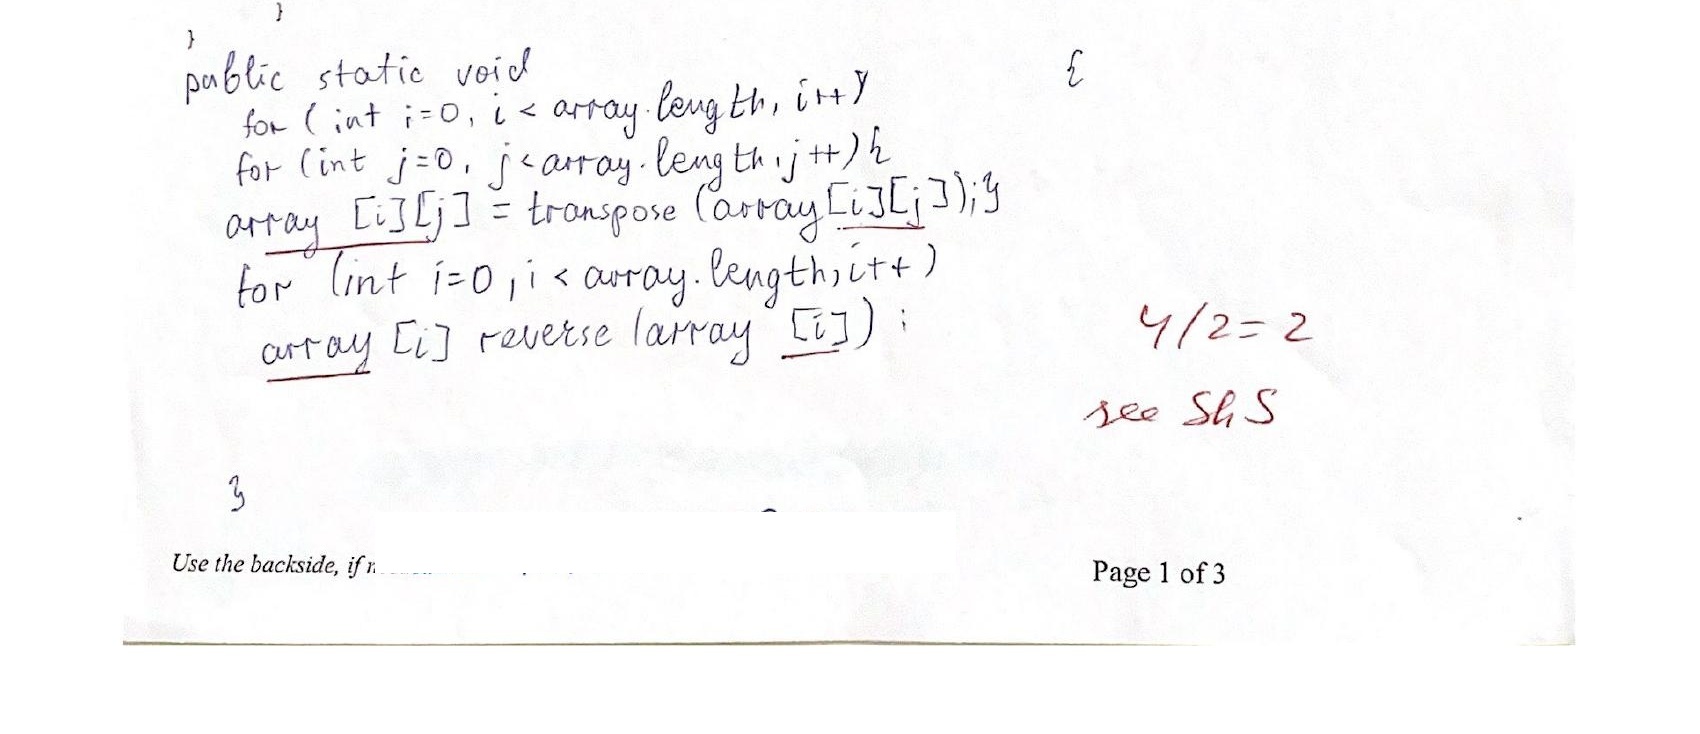 }
}
public static void {
for (int i=0, i < array.length, i++)
for (int j=0, j<array.length, j++) {
array [i][j] = transpose (array[i][j]);}
for (int i=0, i < array.length, i++)
array [i] reverse (array [i]) ;
4/2=2
see ShS
}
Use the backside, if
Page 1 of 3